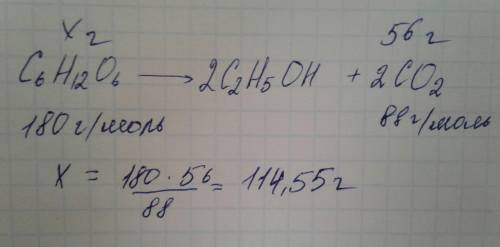 x г 56 г
C₆H₁₂O₆ ⟶ 2C₂H₅OH + 2CO₂
180 г/моль 88 г/моль
X = 180 · 56 / 88 = 114,55 г